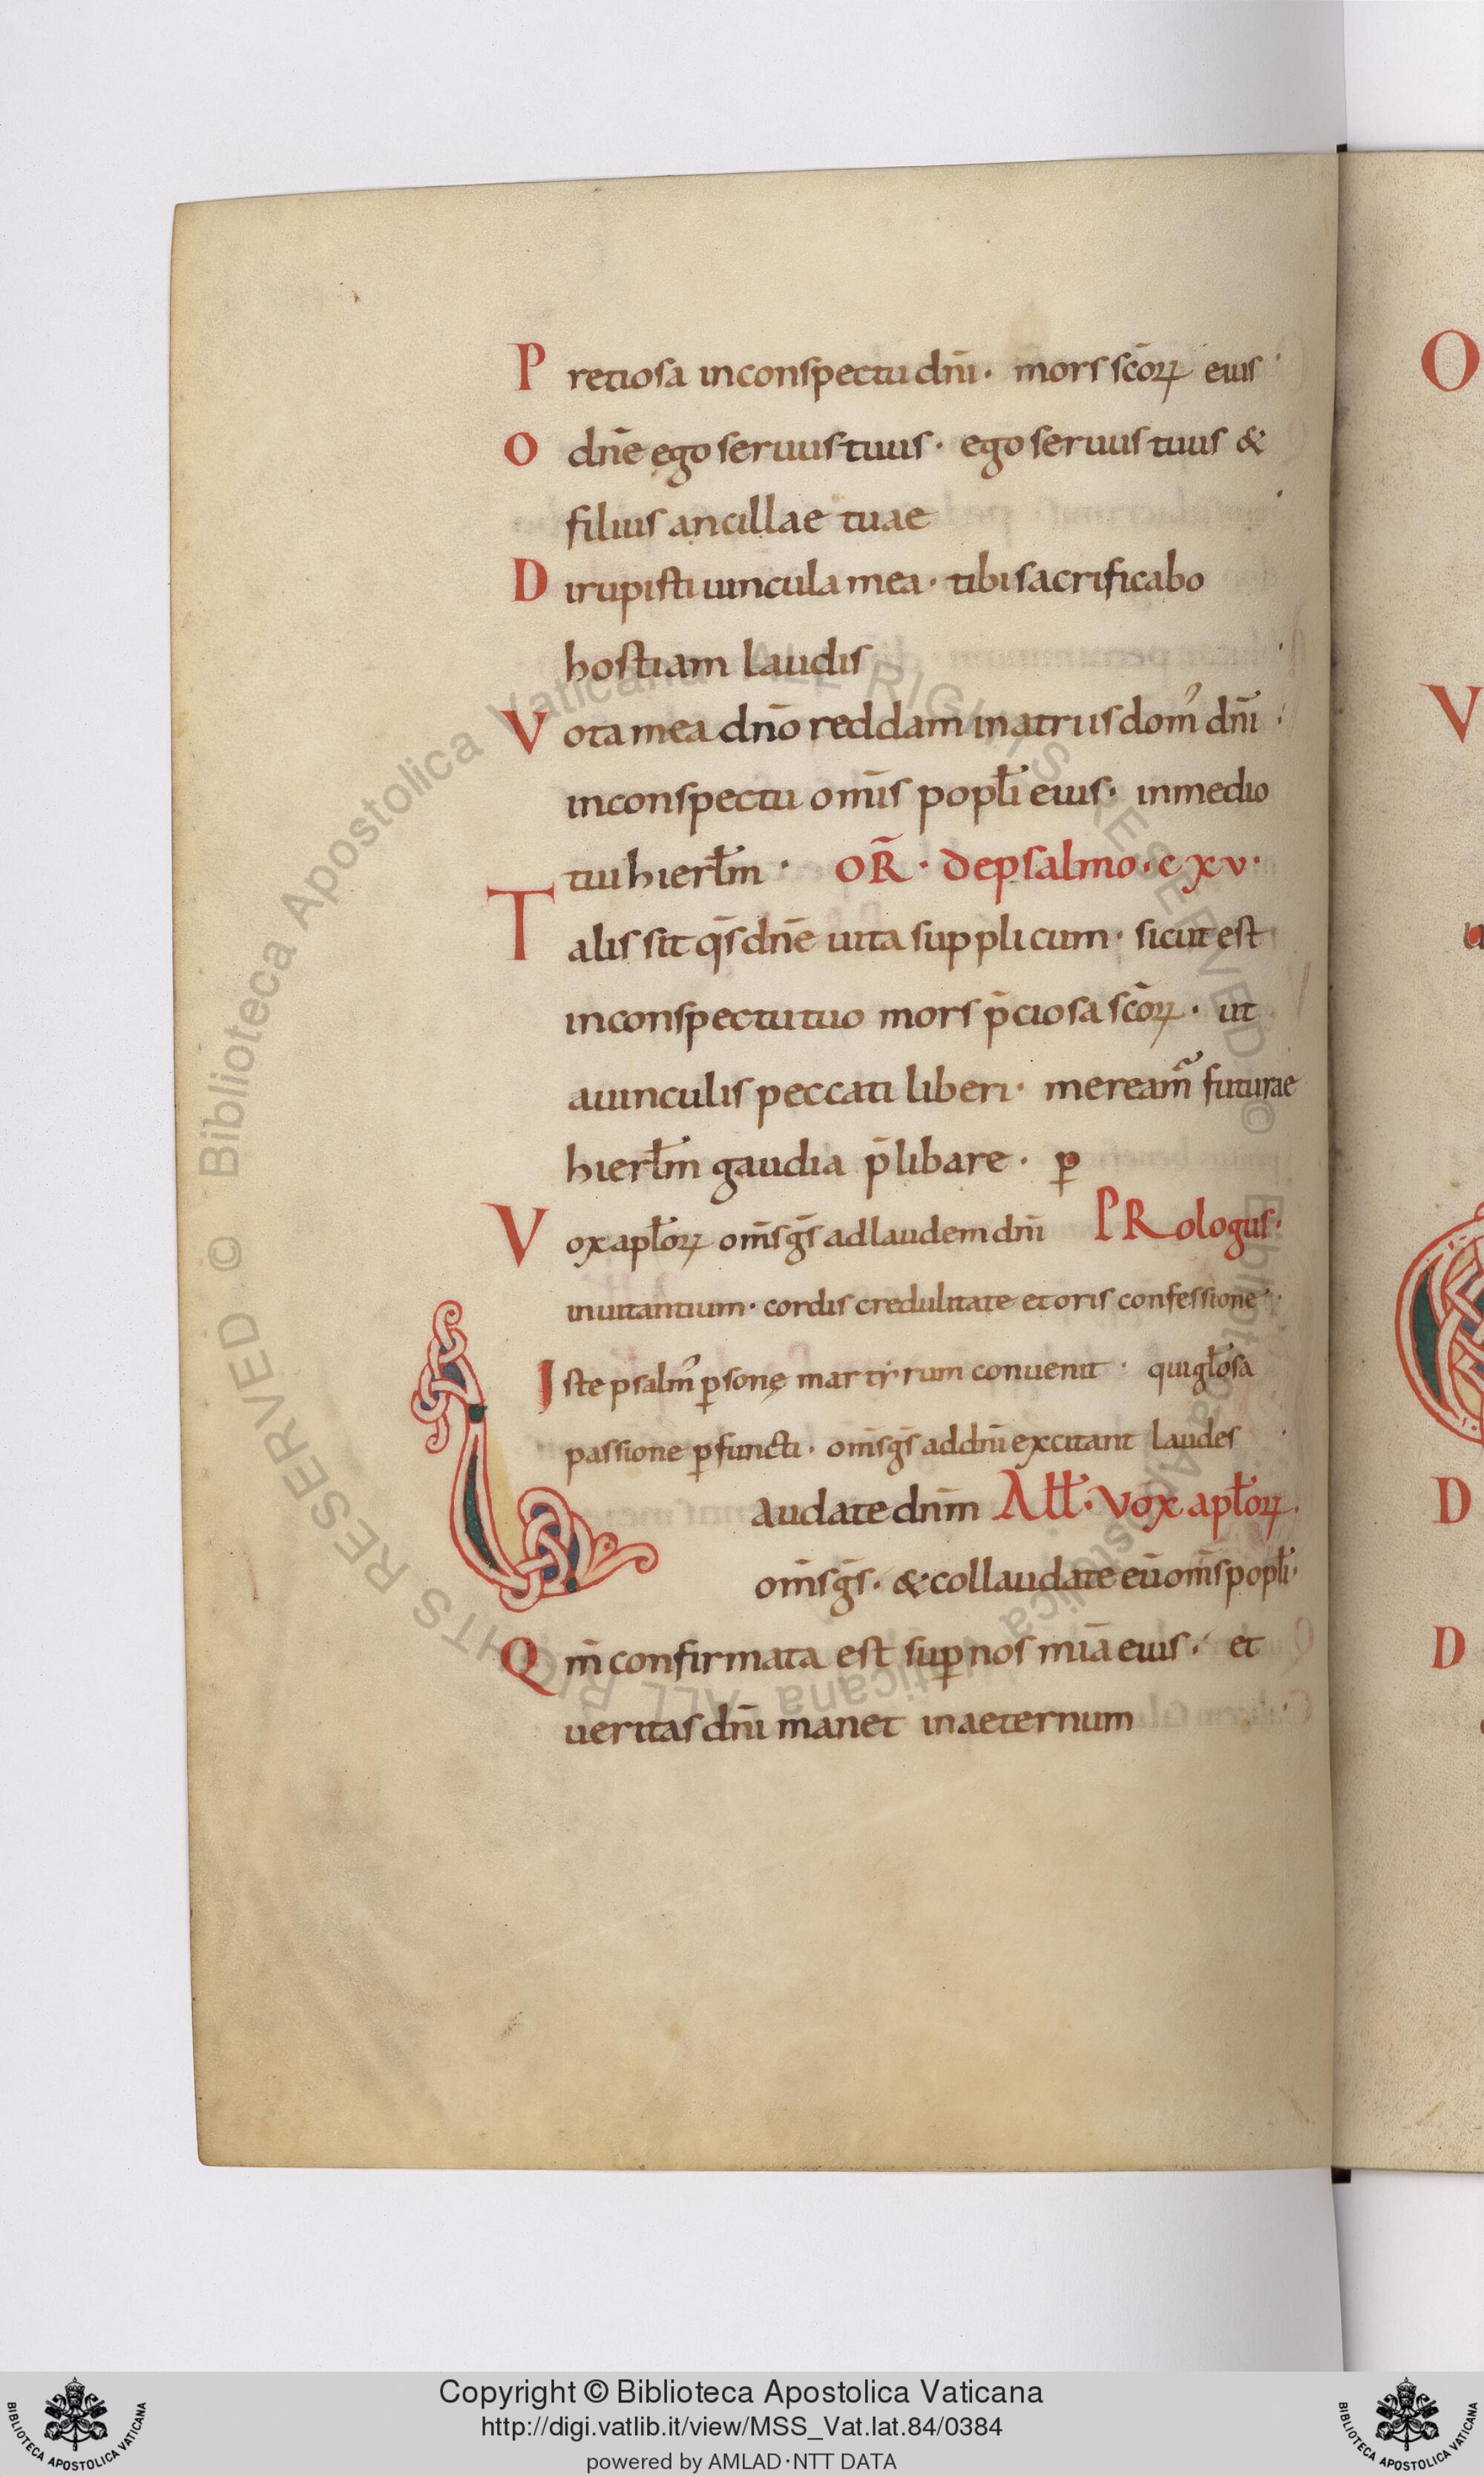 Pretiosa inconspectu dn̄i · mors sc̄oꝝ eius ·
O dn̄e ego seruus tuus · ego seruus tuus &
filius ancillae tuae ·
Dirupisti uincula mea · tibi sacrificabo
hostiam laudis ·
Vota mea dn̄o reddam inatriis dom᾽ dn̄i ·
inconspectu om̄is popl̄i eius · inmedio
tui hierl̄m · OR̄ · depsalmo · cxv ·
Talis sit q̄s dn̄e uita supplicum · sicut est
inconspectu tuo mors p̄ciosa sc̄oꝝ · ut
auinculis peccati liberi · meream᷑ futurae
hierl̄m gaudia p̄libare · ꝑ
Vox apl̄oꝝ om̄s ḡs adlaudem dn̄i PRologus ·
inuitantium · cordis credulitate et oris confessione ·
Iste psalm᾽ ꝑsonę martyrum conuenit · qui gl̄osa
passione ꝑfuncti · om̄s ḡs addn̄i excitant laudes ·
Laudate dn̄m All̄ · Vox apl̄oꝝ ·
om̄s ḡs · & collaudate eū om̄s popl̄i ·
Qm̄ confirmata est suꝑ nos mīa eius · et
ueritas dn̄i manet inaeternum ·
O
V
D
D
© Biblioteca Apostolica Vaticana ALL RIGHTS RESERVED
© Biblioteca Apostolica Vaticana ALL RIGHTS RESERVED
Copyright © Biblioteca Apostolica Vaticana
http://digi.vatlib.it/view/MSS_Vat.lat.84/0384
powered by AMLAD·NTT DATA
BIBLIOTECA APOSTOLICA VATICANA
BIBLIOTECA APOSTOLICA VATICANA